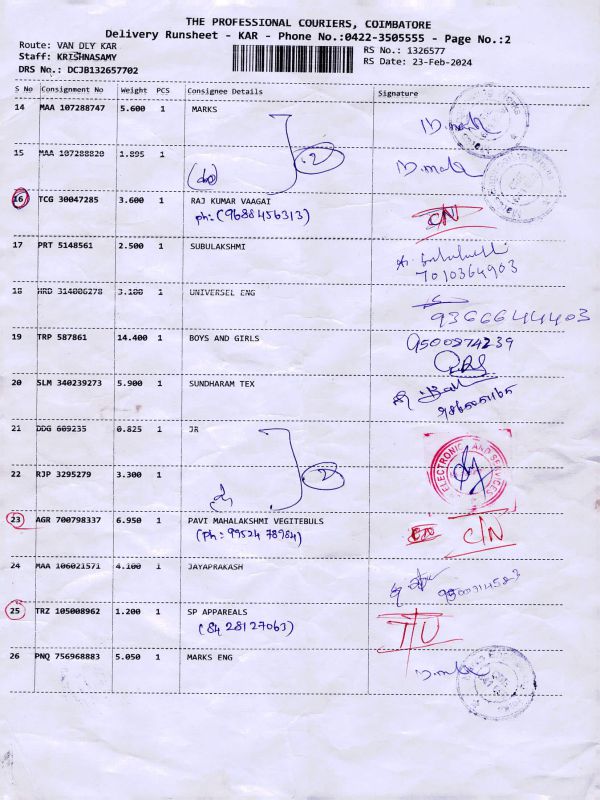 THE PROFESSIONAL COURIERS, COIMBATORE
Delivery Runsheet - KAR - Phone No.:0422-3505555 - Page No.:2
Route: VAN DLY KAR
Staff: KRISHNASAMY
DRS No.: DCJB132657702
RS No.: 1326577
RS Date: 23-Feb-2024
S No Consignment No Weight PCS Consignee Details Signature
14 MAA 107288747 5.600 1 MARKS
2
15 MAA 107288820 1.895 1
16 TCG 30047285 3.600 1 RAJ KUMAR VAAGAI C/N
ph: (9688456313)
17 PRT 5148561 2.500 1 SUBULAKSHMI
7010364903
18 HRD 314006278 3.100 1 UNIVERSEL ENG
9366644403
19 TRP 587861 14.400 1 BOYS AND GIRLS 9500974239
20 SLM 340239273 5.900 1 SUNDHARAM TEX
21 DDG 609235 0.825 1 JR
ELECTRONIC AND SERVICES
22 RJP 3295279 3.300 1
2
23 AGR 700798337 6.950 1 PAVI MAHALAKSHMI VEGITEBULS C/N
(Ph: 99524 78984)
24 MAA 106021571 4.100 1 JAYAPRAKASH
25 TRZ 105008962 1.200 1 SP APPAREALS
(84 28127063)
26 PNQ 756968883 5.050 1 MARKS ENG